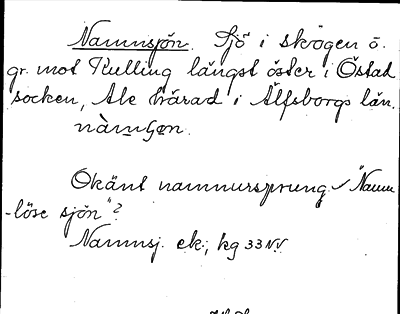 Namnsjön. Sjö i skogen ö.
gr. mot Kulling längst öster i Östad
socken, Ale härad i Älfsborgs län.
Okänt namnursprung "Namn
-löse sjön"?
Namnsj. ek.; hg 33 NV